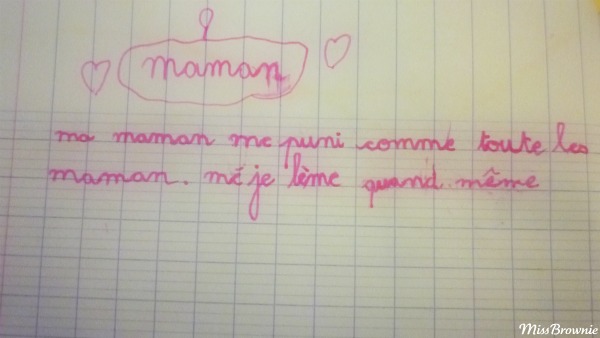 maman
ma maman me puni comme toute les
maman. mé je lème quand même
MissBrownie